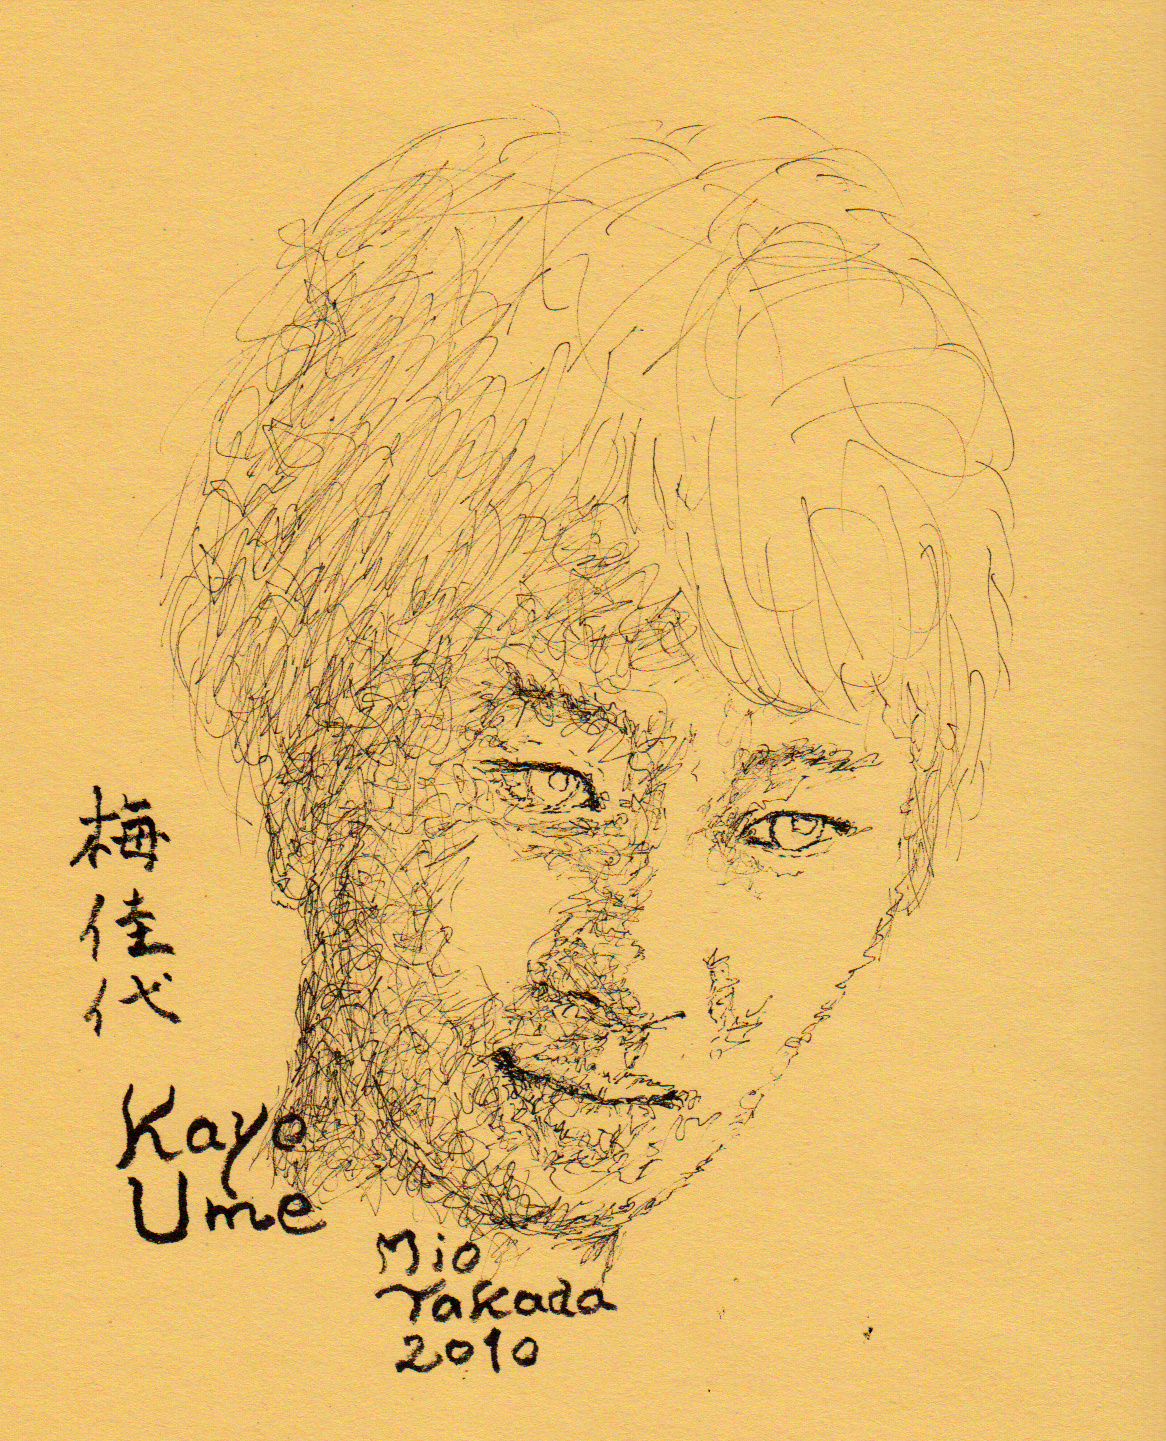 梅佳代
Kayo
Ume
Mio
Takada
2010